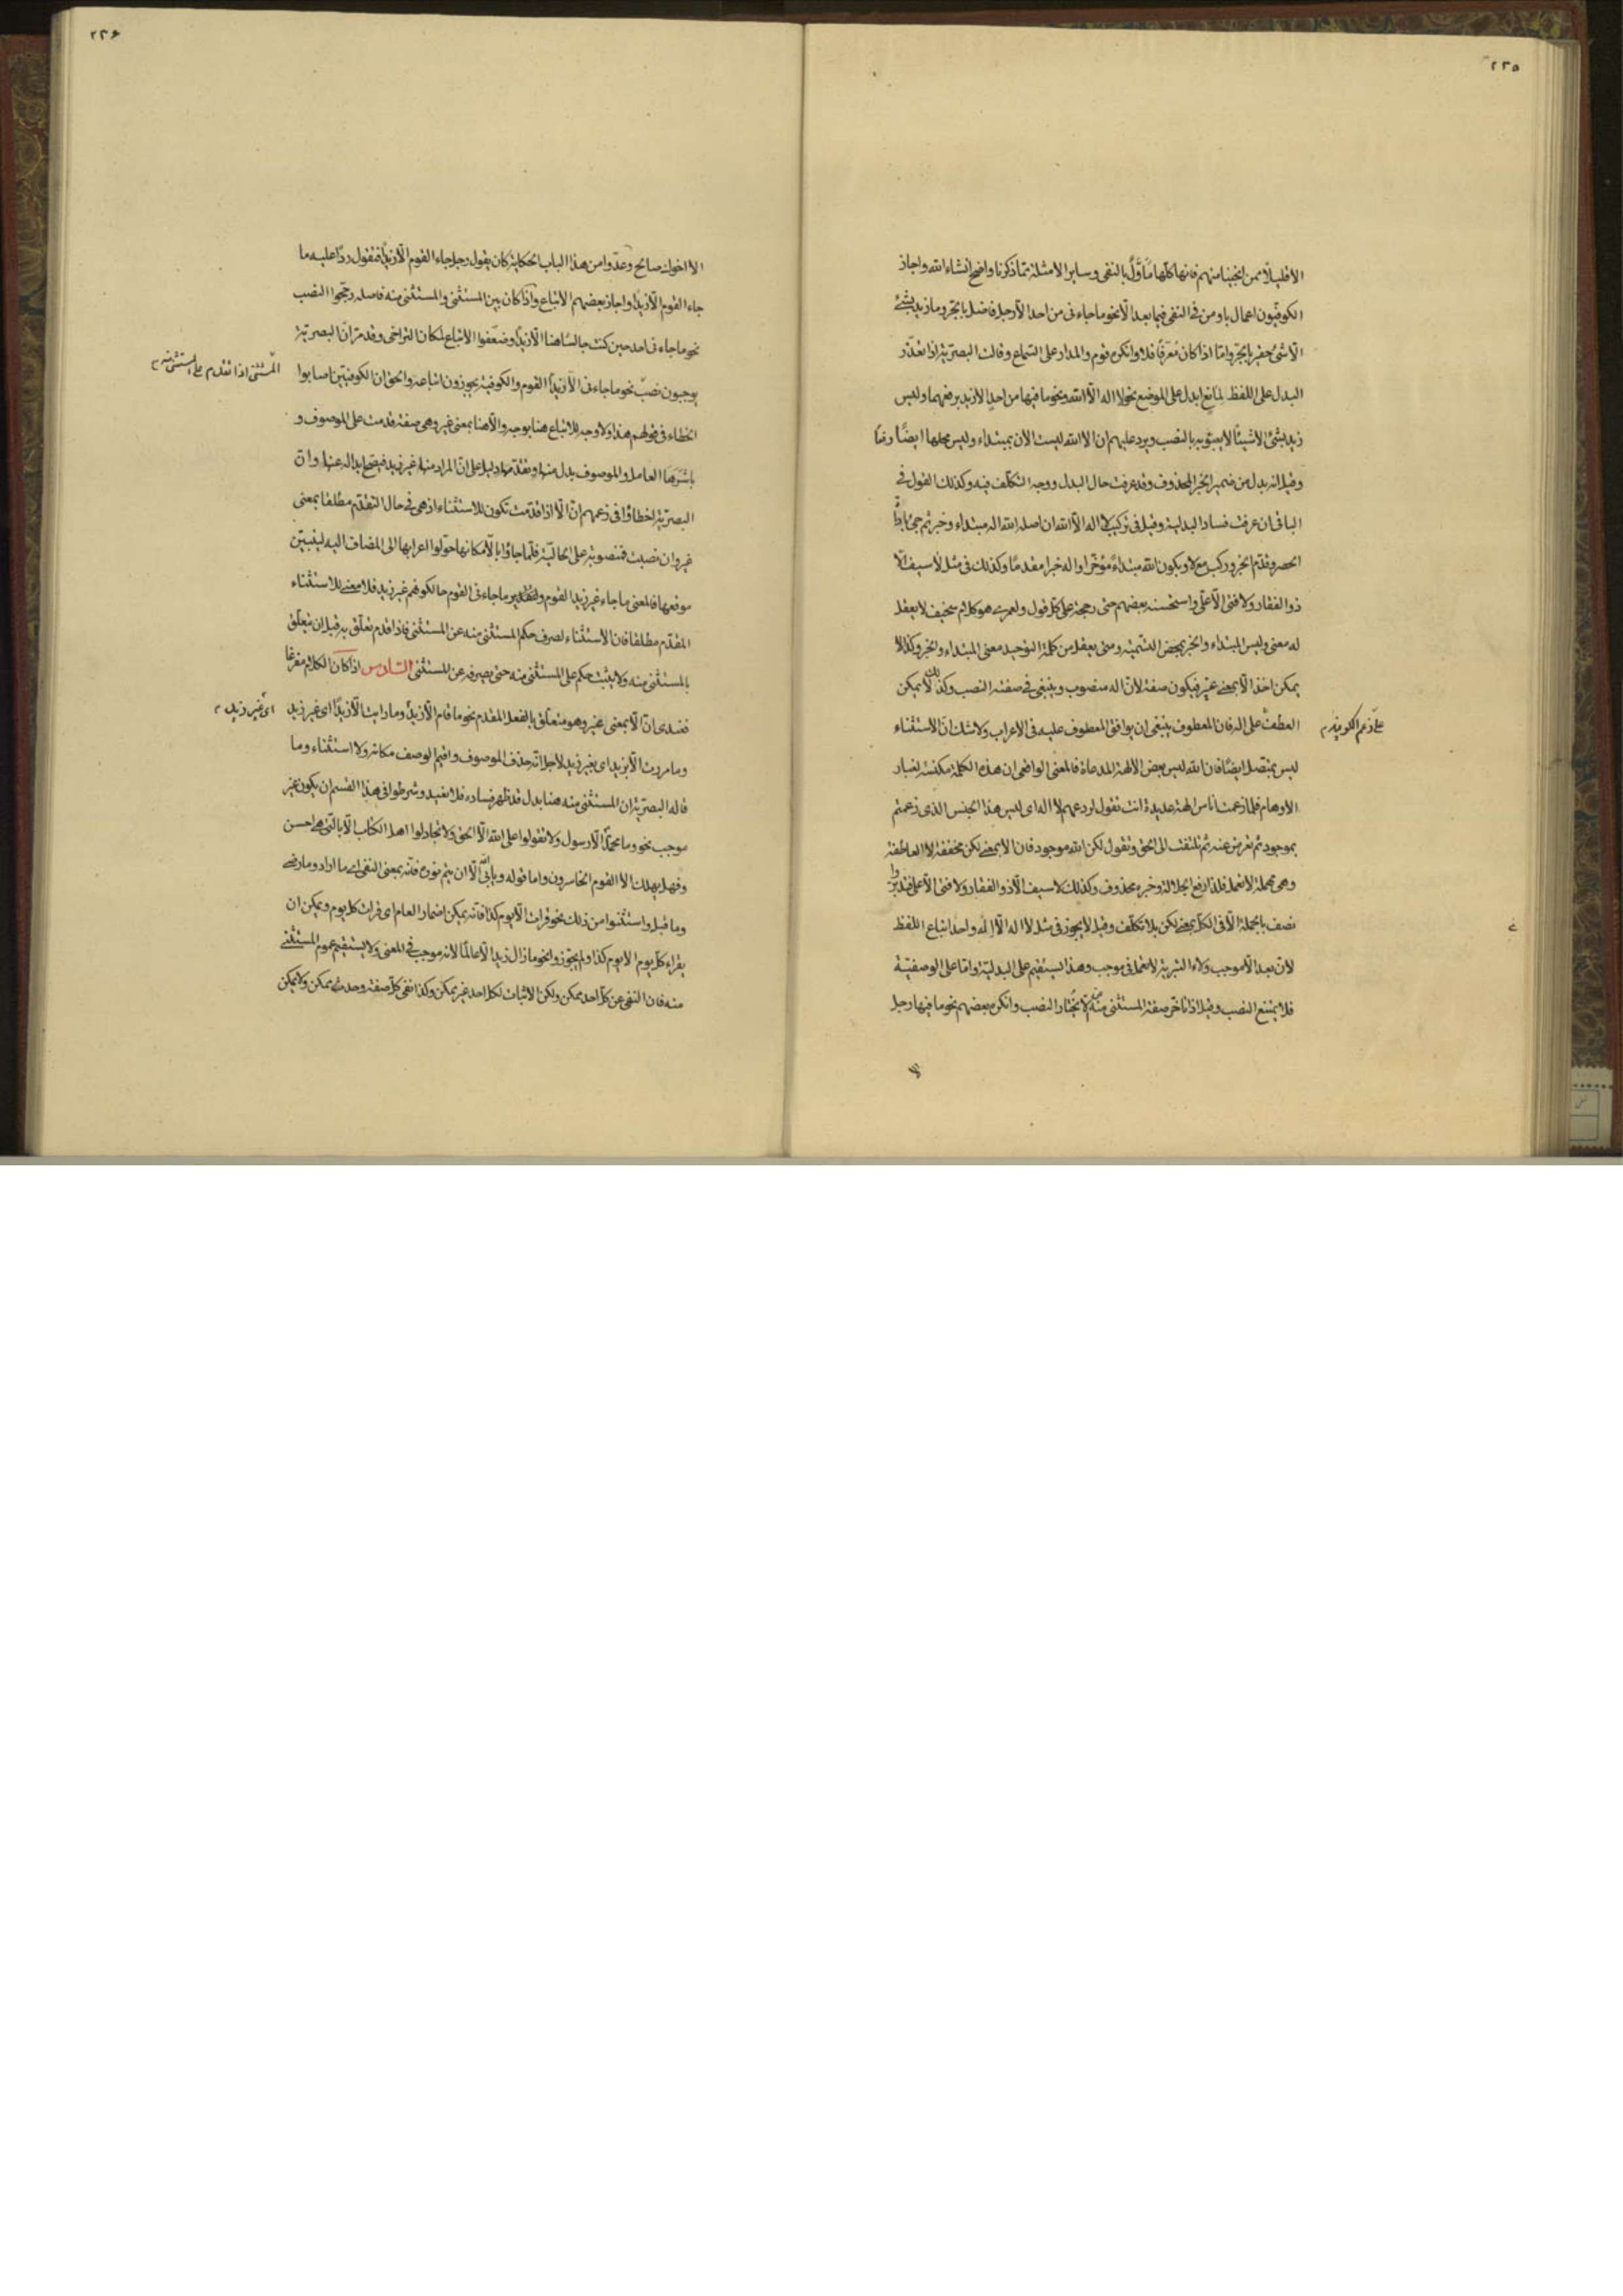 ٢٢٥
الا قليلا ممن انجينا منهم فانها كلها مأوّل بالنفى وساير الامثلة مما ذكرنا واضح انشاء الله واجاز
الكوفيّون اعمال باء ومن فى النفى فيما بعد الّا نحو ما جاءنى من احد الّا رجل فاضل بالجرّ وما زيد بشئ
الّا شئ حقير بالجرّ وامّا اذا كان معرّفا فلا وانكره قوم والمدار على السّماع وقالت البصريّة اذا تعذّر
البدل على اللفظ لمانع ابدل على الموضع نحو لا اله الّا الله ونحو ما فيها من احد الّا زيد برفعهما وليس
زيد بشئ الّا شيئا لا يعبؤ به بالنصب ويرد عليهم ان الا الله ليست الان بمبتداء وليس محلها ايضًا رفعًا
وقيل انه بدل من ضمير الخبر المحذوف وقد عرفت حال البدل ووجه التكلّف فيه وكذلك القول فى
الباقى ان عرفت فساد البدلية وقيل فى تركيب لا اله الّا الله ان اصله الله اله مبتداء وخبر ثم جئ باداة
الحصر وقدّم الخبر وركب مع لا ويكون الله مبتداءً مؤخّرا واله خبرا مقدمًا وكذلك فى مثل لا سيف الّا
ذو الفقار ولا فتى الّا علّى واستحسنه بعضهم حتى رجحه على كلّ قول ولعمرى هو كلام سخيف لا يعقل
له معنى وليس المبتداء والخبر بمحض التسمية ومتى يعقل من كلمة التوحيد معنى المبتداء والخبر وكذا لا
يمكن اخذ الّا بمعنى غير فيكون صفة لانّ اله منصوب وينبغى فى صفته النصب وكذلك لا يمكن
العطف على اله فان المعطوف ينبغى ان يوافق المعطوف عليه فى الاعراب ولا شك انّ الاستثناء
على زعم الكوفية م
ليس بمتصل ايضًا فان الله ليس بعض الالهة المدعاة فالمعنى الواقعى ان هذه الكلمة مكنسة لغبار
الاوهام فلما زعمت اناس الهة عديدة انت تقول لردعهم لا اله اى ليس هذا الجنس الذى زعمتم
بموجود ثم تعرض عنه ثم تلتفت الى الحق وتقول لكن الله موجود فان الا بمعنى لكن مخففة لا العاطفة
وهى مهملة لا تعمل فلذا رفع الجلالة وخبره محذوف وكذلك لا سيف الّا ذو الفقار ولا فتى الّا على فتدبّروا
نصف بالجملة الّا فى الكل بمعنى لكن بلا تكلّف وقيل لا يجوز فى مثل لا اله الّا اله واحد اتباع اللفظ
لانّ بعد الّا موجب ولاء التبرية لا تعمل فى موجب وهذا يستقيم على البدليّة وامّا على الوصفيّة
فلا يمتنع النصب وقيل اذا تأخّر صفة المستثنى منه عنه لا يختار النصب وانكره بعضهم نحو ما فيها رجل
الا
٢٢۶
الا اخوك صالح وعدّوا من هذا الباب الحكاية كان يقول رجل جاء القوم الّا زيدًا فتقول ردّا عليه ما
جاء القوم الّا زيدًا واجاز بعضهم الاتباع واذا كان بين المستثنى والمستثنى منه فاصلة رجّحوا النصب
نحو ما جاءنى احد حين كنت جالسًا هنا الّا زيدًا وضعّفوا الاتباع لمكان التراخى وقد مرّ انّ البصريّة
يوجبون نصب نحو ما جاءنى الّا زيدًا القوم والكوفية يجوزون اتباعه والحق ان الكوفيّين اصابوا
المستثنى اذا تقدم على المستثنى منه م
الخطاء فى قولهم هذا ولا وجه للاتباع هنا بوجه والّا هنا بمعنى غير وهى صفة قدمت على الموصوف و
باشرها العامل والموصوف بدل منها وتقدّمها دليل على انّ المراد منها غير زيد فيصح ابداله عنها وانّ
البصريّة اخطاؤا فى زعمهم انّ الّا اذا قدّمت تكون للاستثناء اذ هى فى حال التقدّم مطلقا بمعنى
غير وان نصبت فمنصوبة على الحاليّة فلّما جاؤا بالّا مكانها حوّلوا اعرابها الى المضاف اليه ليتبيّن
موقعها فالمعنى ما جاء غير زيد القوم والتقدير ما جاءنى القوم حالكونهم غير زيد فلا معنى للاستثناء
المقدّم مطلقا فان الاستثناء لصرف حكم المستثنى منه عن المستثنى فاذا قدم تعلّق به قبل ان يتعلّق
بالمستثنى منه ولا يثبت حكم على المستثنى منه حتى يصرفه عن المستثنى السّادس اذا كان الكلام مفرغا
فعندى انّ الّا بمعنى غير وهو متعلّق بالفعل المقدم نحو ما قام الّا زيدٌ وما رايت الّا زيدًا اى غير زيد
اى غير زيد م
وما مررت الّا بزيد اى بغير زيد لاجل انّه حذف الموصوف واقيم الوصف مكانه ولا استثناء وما
قاله البصريّة ان المستثنى منه هنا بدل قد ظهر فساده فلا نعيد وشرطوا فى هذا القسم ان يكون غير
موجب نحو وما محمّد الّا رسول ولا تقولوا على الله الّا الحق ولا تجادلوا اهل الكتاب الّا بالتى هى احسن
وفهل يهلك الا القوم الخاسرون واما قوله ويأبى الله الّا ان يتم نوره فانّه بمعنى النفى اى ما اراد وما رضى
وما قبل واستثنوا من ذلك نحو قرات الّا يوم كذا فانّه يمكن اضمار العام اى قرات كل يوم ويمكن ان
يقراء كلّ يوم الا يوم كذا ولم يجوّزوا نحو ما زال زيد الّا عالمًا لانه موجب فى المعنى ولا يستقيم عموم المستثنى
منه فان النفى عن كلّ احد ممكن ولكن الاثبات لكل احد غير ممكن وكذا نفى كلّ صفة وحدث ممكن ولا يمكن